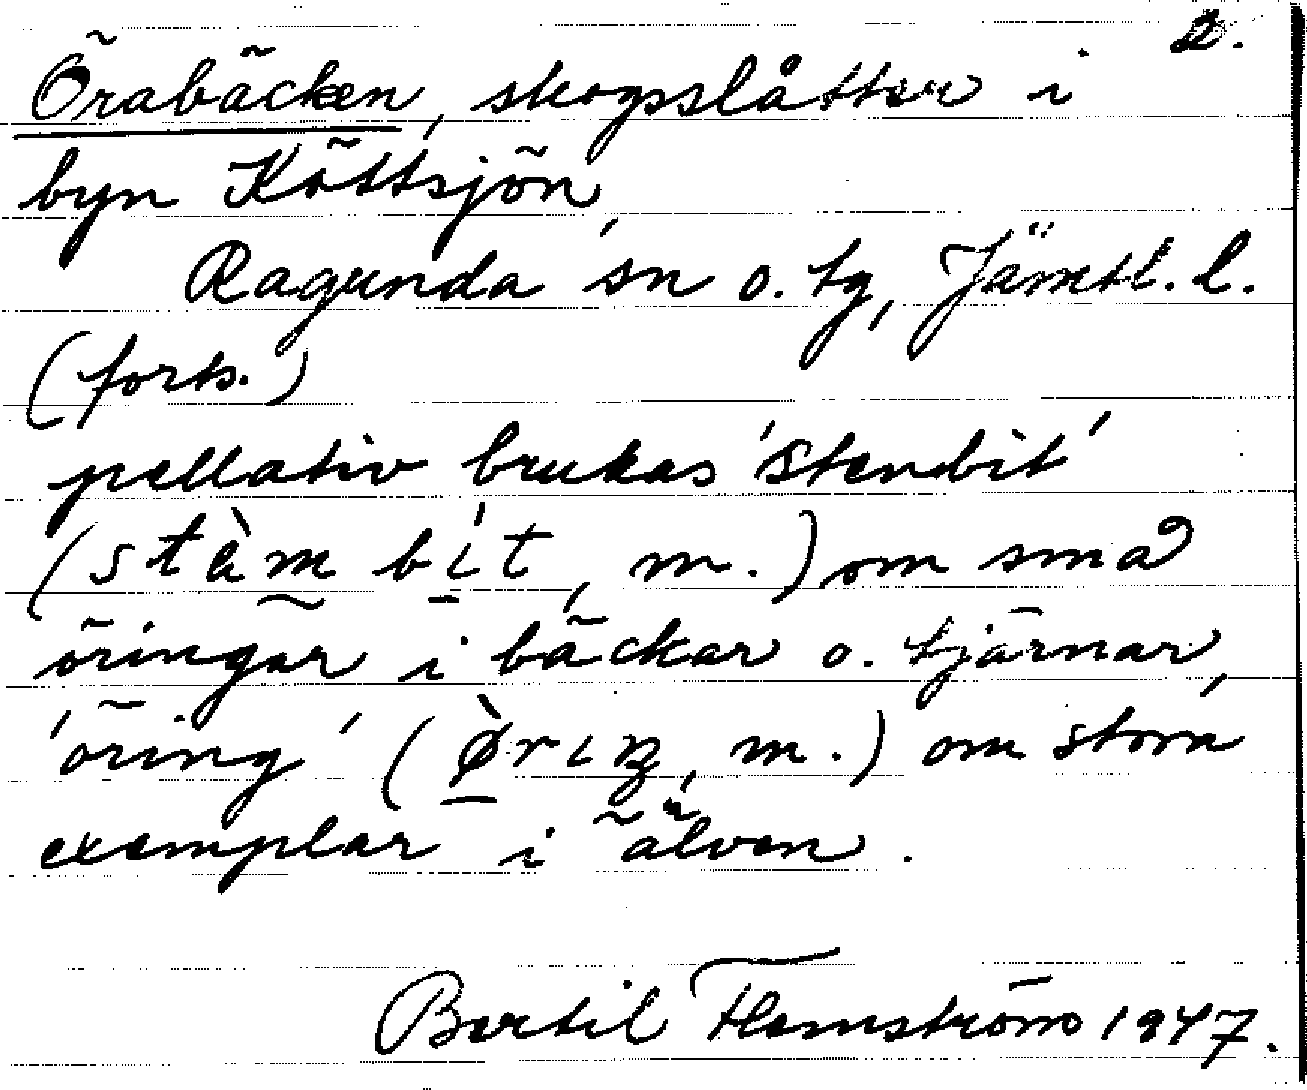 2.
Örabäcken, skogsslåtter i
byn Köttsjön,
Ragunda sn o. tg, Jämtl. l.
(forts.)
pellativ brukas 'stenbit'
(stàm bít, m.) om små
öringar i bäckar o. tjärnar,
'öring' (ø̀rıŋ, m.) om stora
exemplar i älven.
Bertil Flemström 1947.